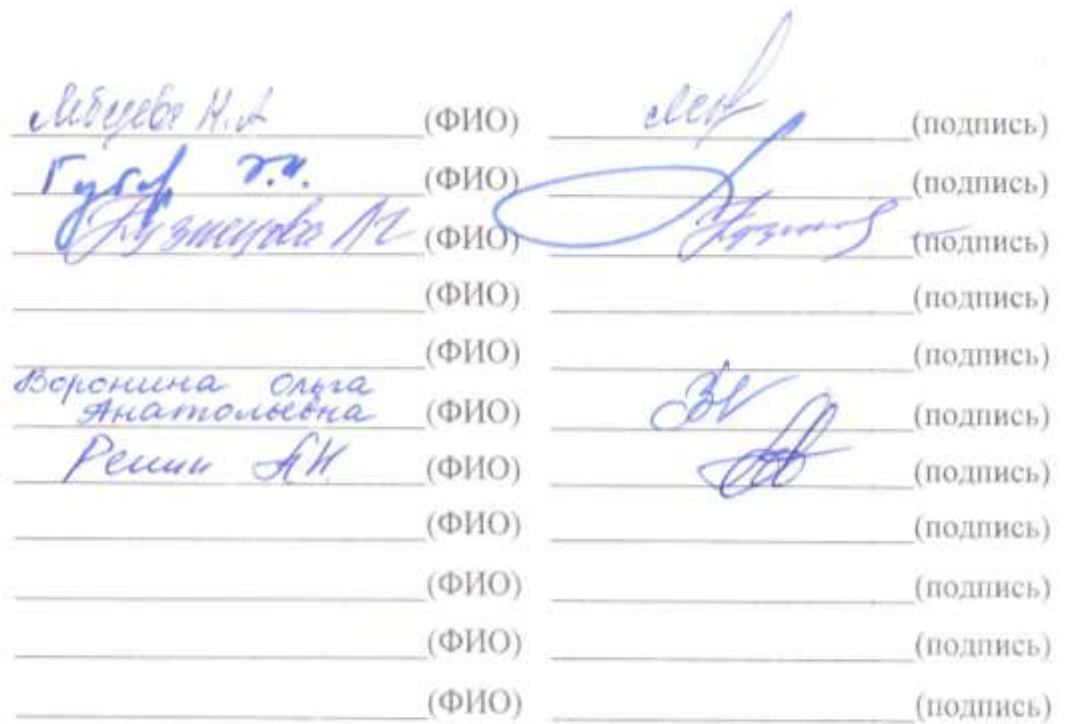 Н.А (ФИО) (подпись)
Губ (ФИО) (подпись)
Кузнецова (ФИО) (подпись)
(ФИО) (подпись)
(ФИО) (подпись)
Воронина Ольга
Анатольевна (ФИО) (подпись)
АН (ФИО) (подпись)
(ФИО) (подпись)
(ФИО) (подпись)
(ФИО) (подпись)
(ФИО) (подпись)